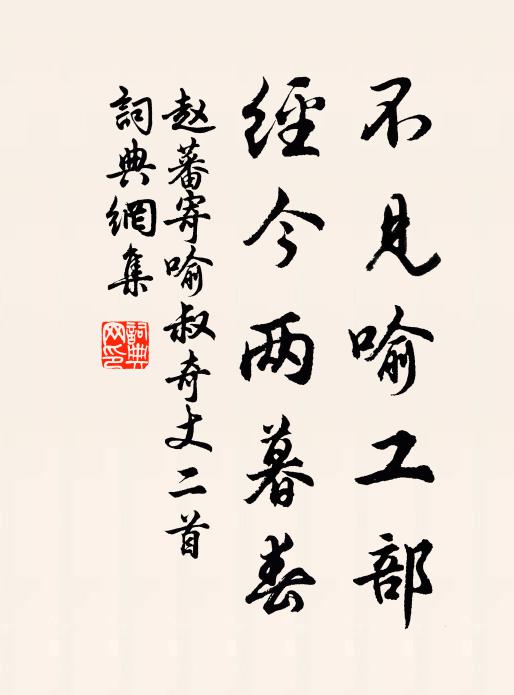 不見喻工部
經今兩暮春
赵蕃寄喻叔奇丈二首
詞典網集
詞典网印